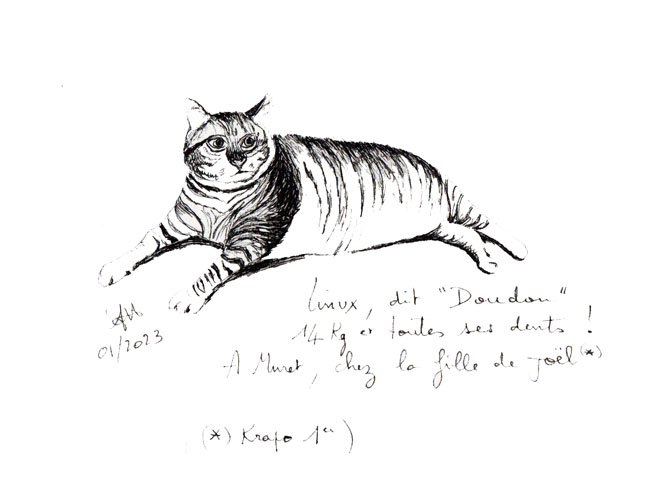 Linux, dit "Doudou"
14 Kg et toutes ses dents !
A Muret, chez la fille de Joël(*)
AM
01/2023
(*) Krapo 1er)